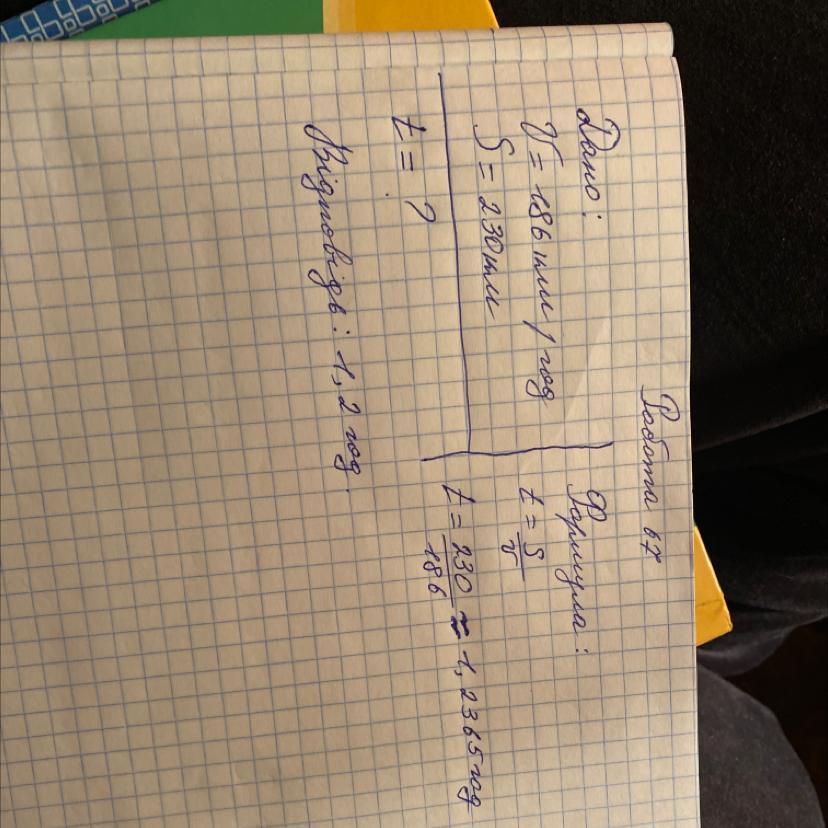 Работа 67
Дано:
V = 186 км/год
S = 230км
t = ?
Формула:
t = S/V
t = 230/186 ≈ 1,2365 год
Відповідь: 1,2 год.